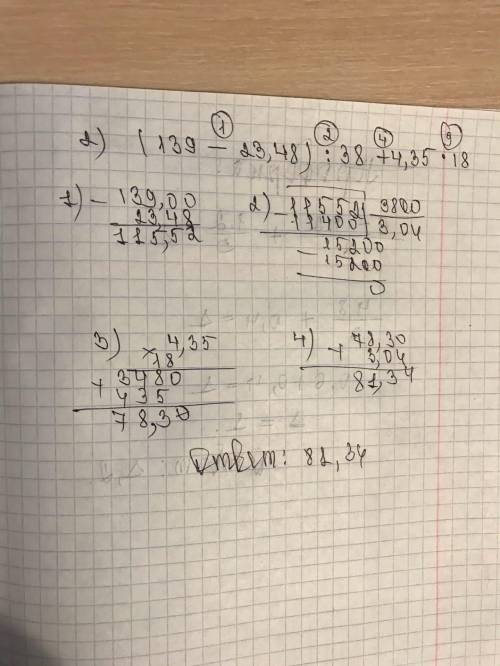 ① ② ④ ③
2) (139 − 23,48) : 38 + 4,35 · 18
1) − 139,00
23,48
115,52
2) − 11552 | 3800
11400 | 3,04
− 15200
15200
0
3) × 4,35
18
+ 3480
435
78,30
4) + 78,30
3,04
81,34
Ответ: 81,34